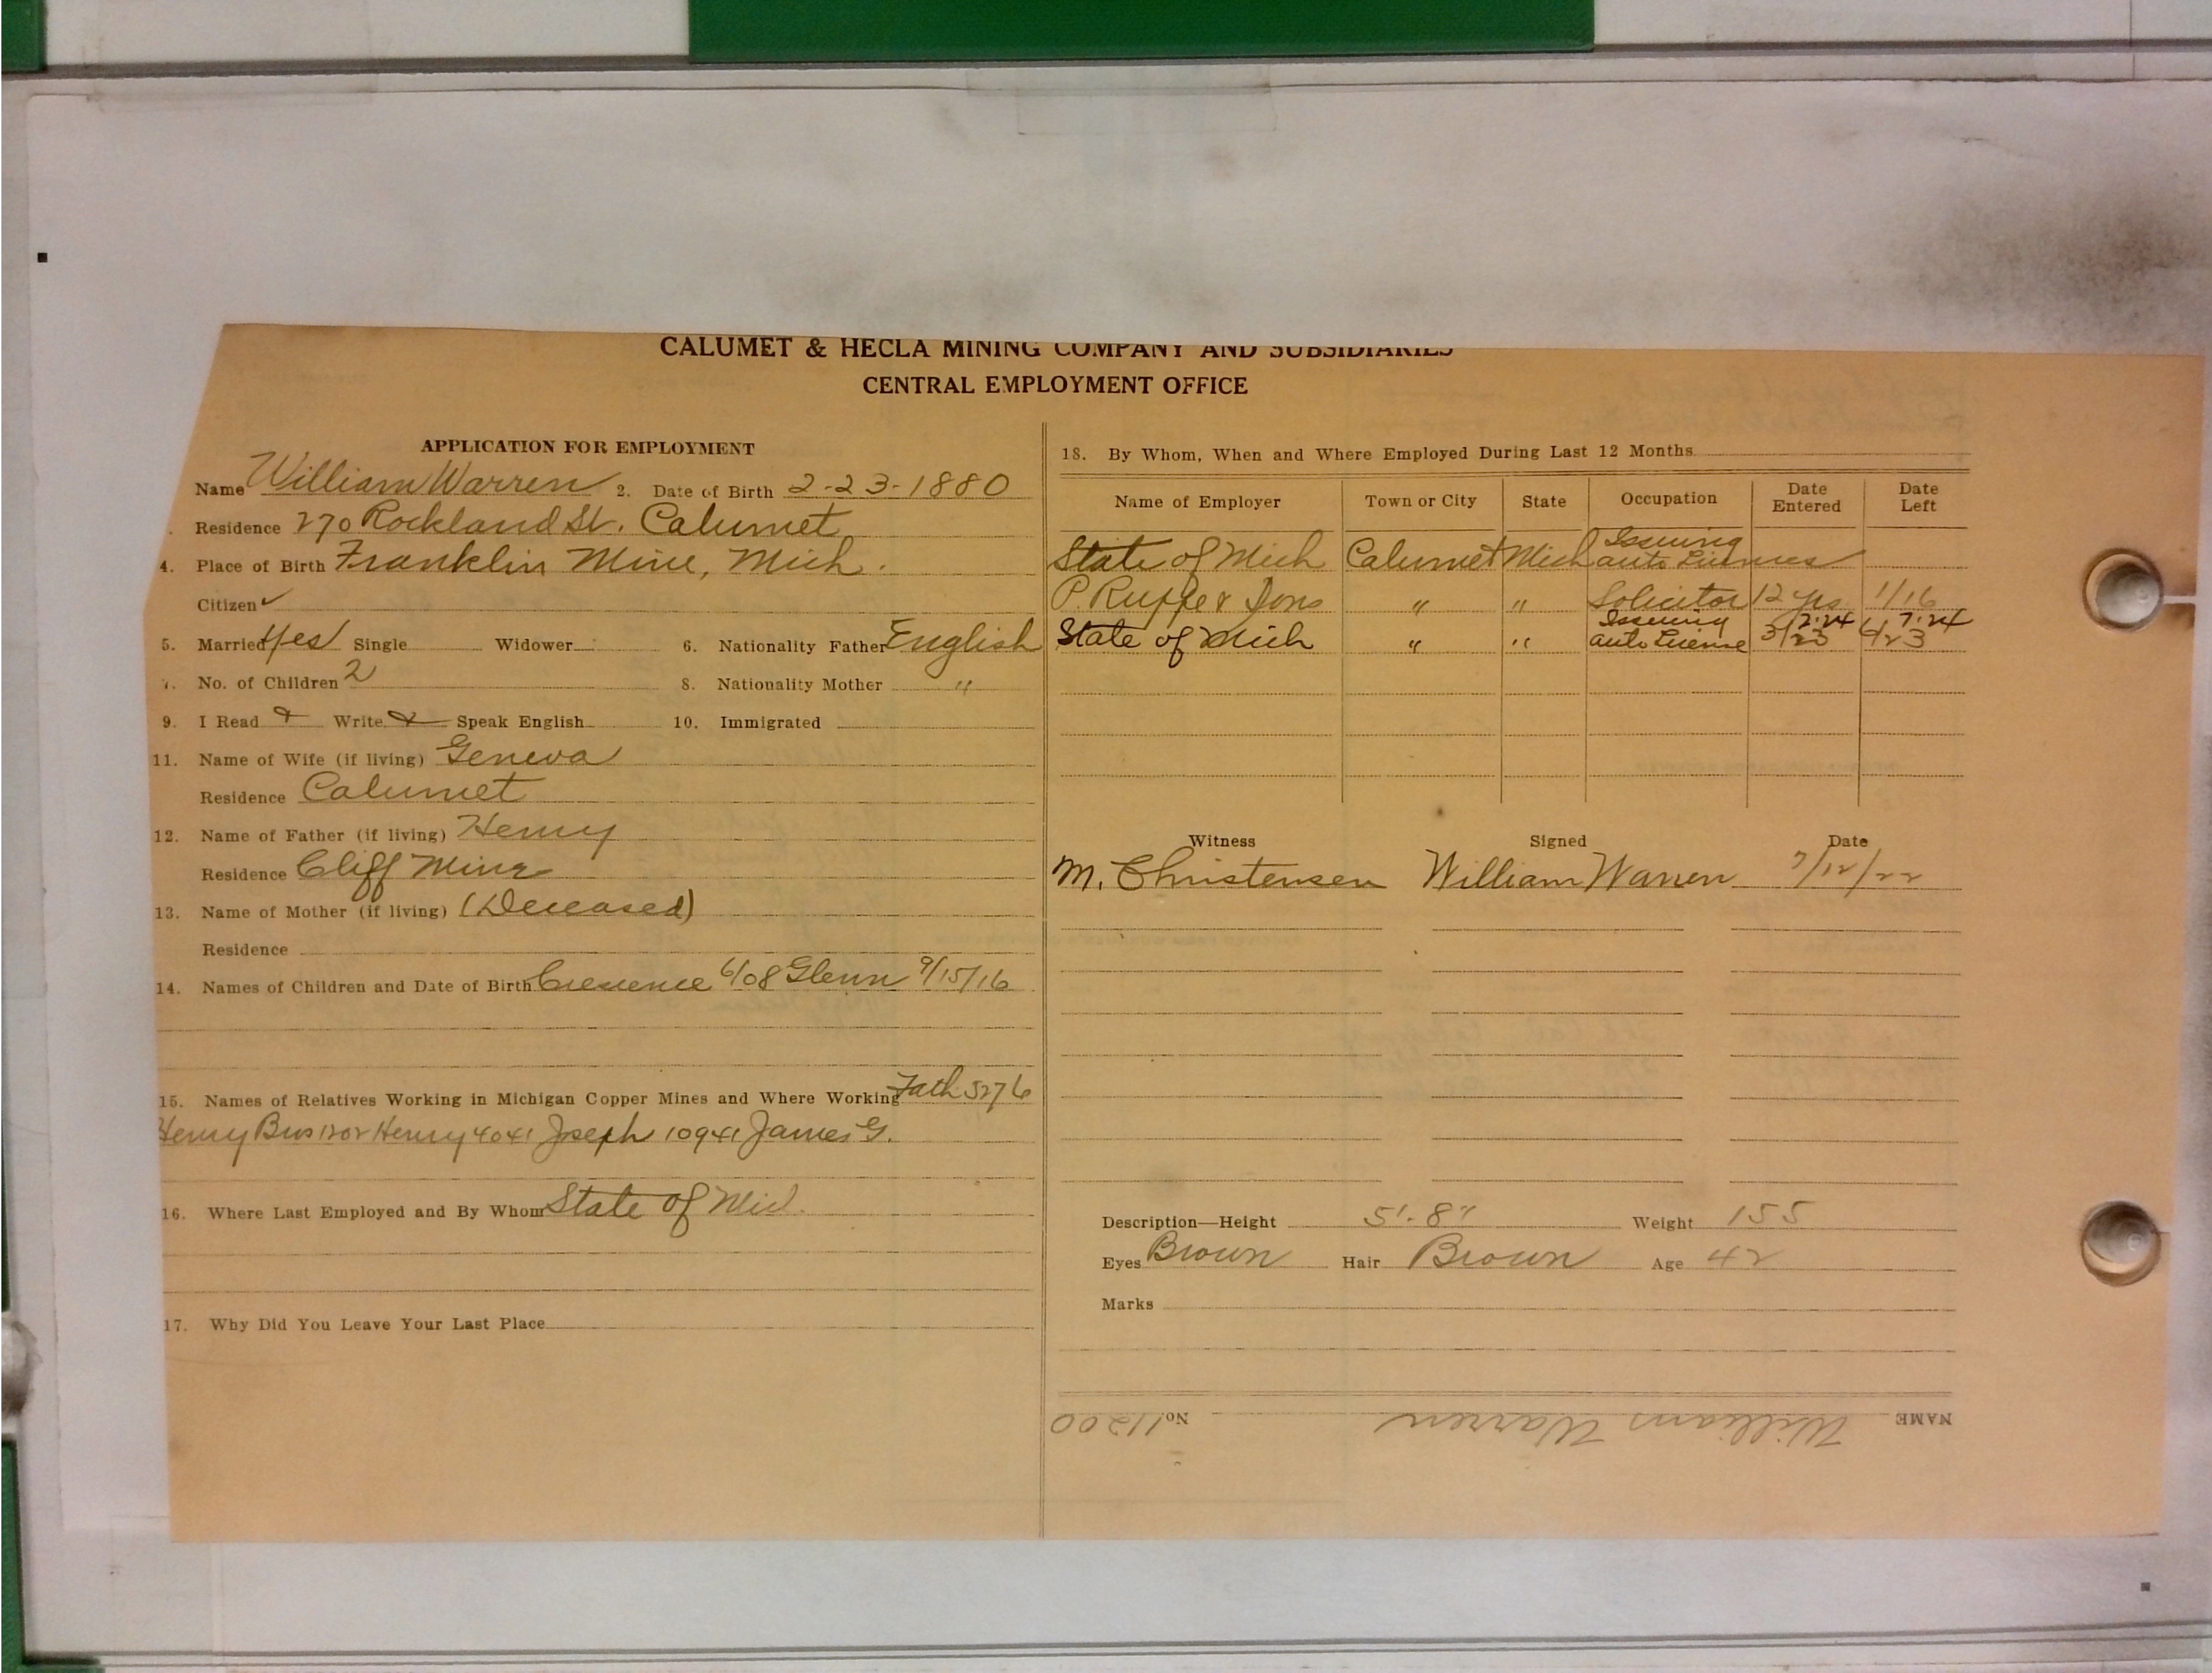 CALUMET & HECLA MINING COMPANY AND SUBSIDIARIES
CENTRAL EMPLOYMENT OFFICE
APPLICATION FOR EMPLOYMENT
Name William Warren 2. Date of Birth 2-23-1880
Residence 270 Rockland St. Calumet
4. Place of Birth Franklin Mine, Mich.
Citizen ✓
5. Married Yes Single Widower 6. Nationality Father English
7. No. of Children 2 8. Nationality Mother "
9. I Read Write Speak English 10. Immigrated
11. Name of Wife (if living) Geneva
Residence Calumet
12. Name of Father (if living) Henry
Residence Cliff Mine
13. Name of Mother (if living) (Deceased)
Residence
14. Names of Children and Date of Birth 6/08 Glenn 9/15/16
15. Names of Relatives Working in Michigan Copper Mines and Where Working Fath 5276
Henry Bros 1202 Henry 4041 Joseph 10941 James G.
16. Where Last Employed and By Whom State of Mich.
17. Why Did You Leave Your Last Place
18. By Whom, When and Where Employed During Last 12 Months
Name of Employer Town or City State Occupation Date Entered Date Left
State of Mich Calumet Mich Issuing auto Licenses
P. Ruppe & Sons " " Solicitor 12 yrs 1/16
State of Mich " " Issuing auto License 3/23 2-24 6/23 7-24
Witness Signed Date
M. Christensen William Warren 7/12/22
Description—Height 5'-8" Weight 155
Eyes Brown Hair Brown Age 42
Marks
NAME William Warren No. 11200